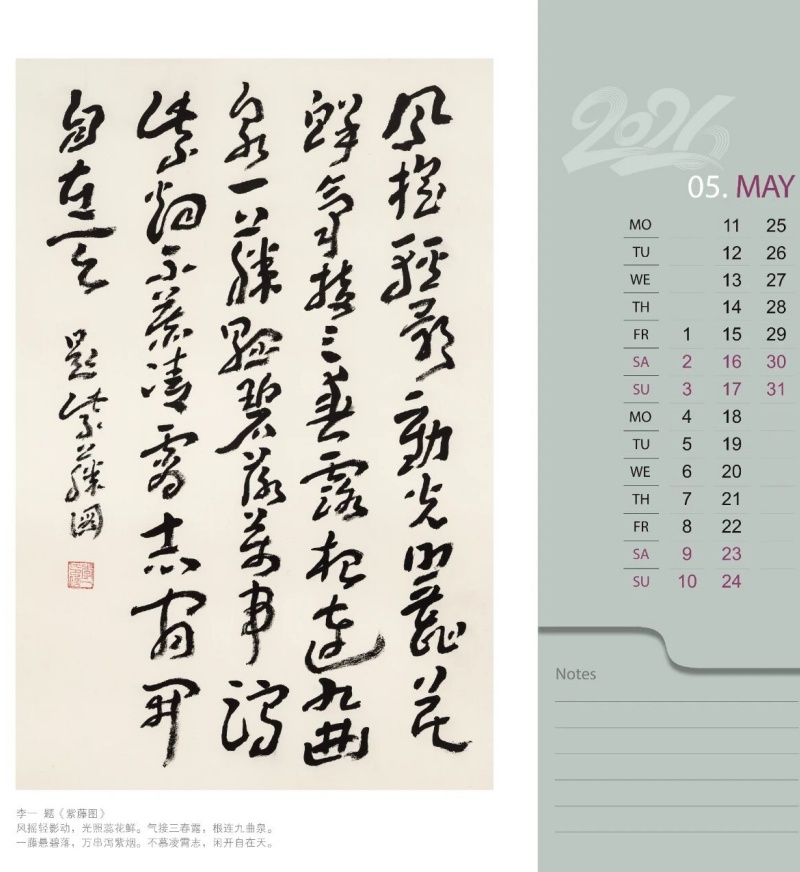 風摇輕影動光照蕊花
鲜氣接三春露根连九曲
泉一藤懸碧落萬串瀉
紫烟不慕凌霄志宥開
自在天
題紫藤圖
李一 题《紫藤图》
风摇轻影动，光照蕊花鲜。气接三春露，根连九曲泉。
一藤悬碧落，万串泻紫烟。不慕凌霄志，闲开自在天。
2026
05. MAY
MO 11 25
TU 12 26
WE 13 27
TH 14 28
FR 1 15 29
SA 2 16 30
SU 3 17 31
MO 4 18
TU 5 19
WE 6 20
TH 7 21
FR 8 22
SA 9 23
SU 10 24
Notes